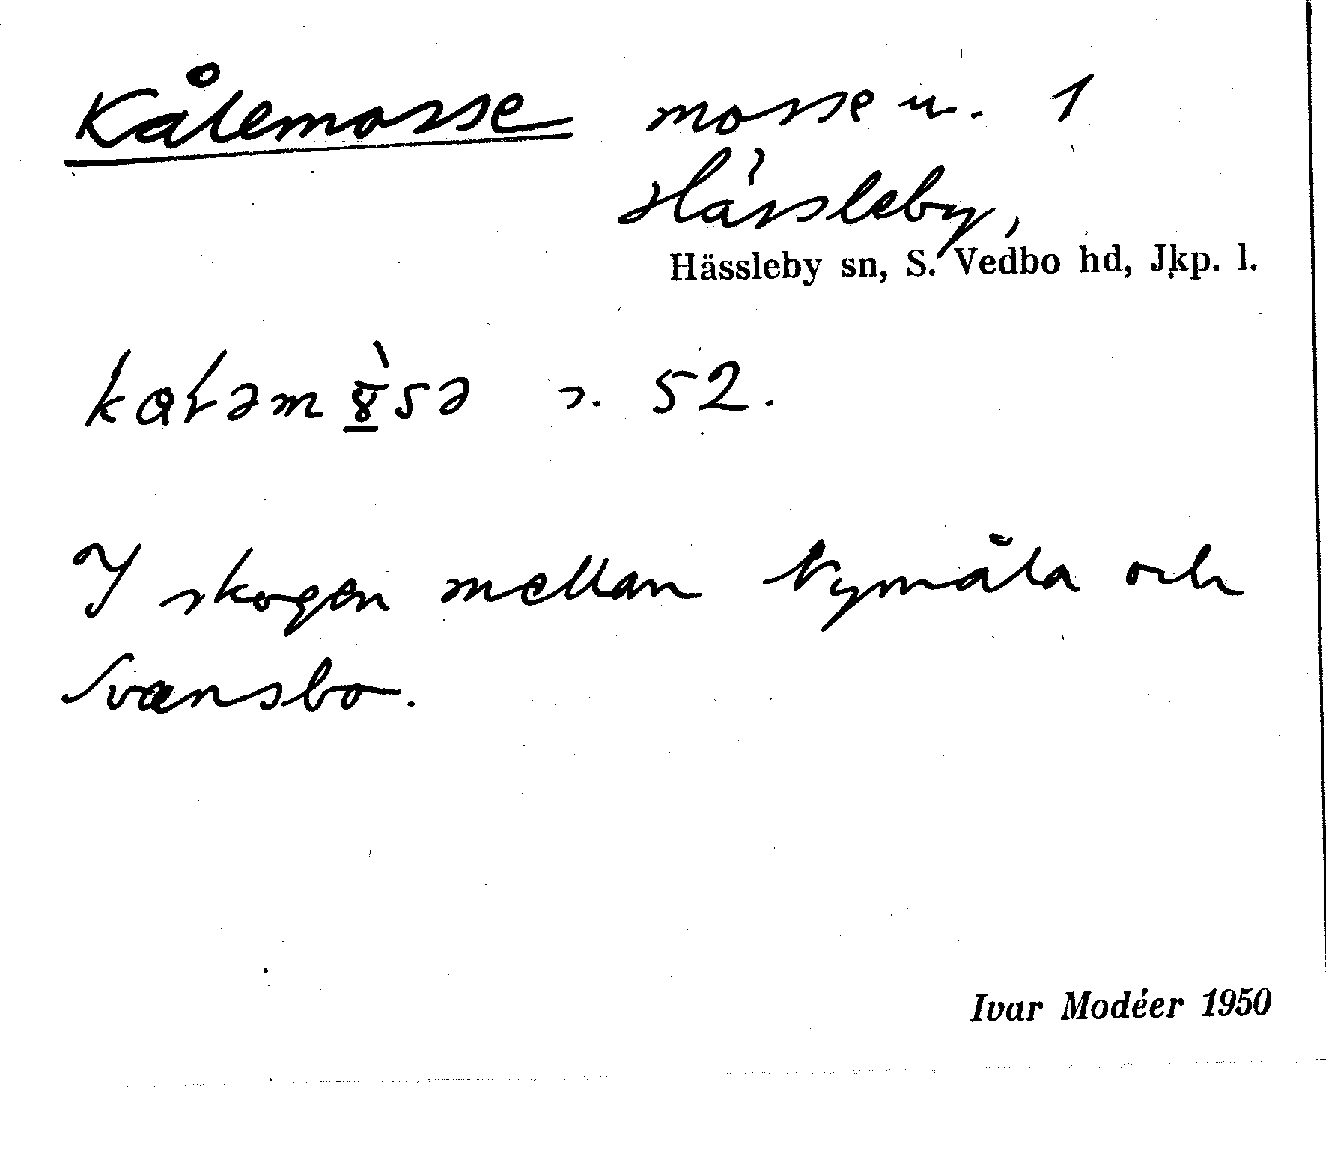 Kålemosse mosse u. 1
Hässleby,
Hässleby sn, S. Vedbo hd, Jkp. l.
s. 52.
I skogen mellan Nymåla och
Svensbo.
Ivar Modéer 1950